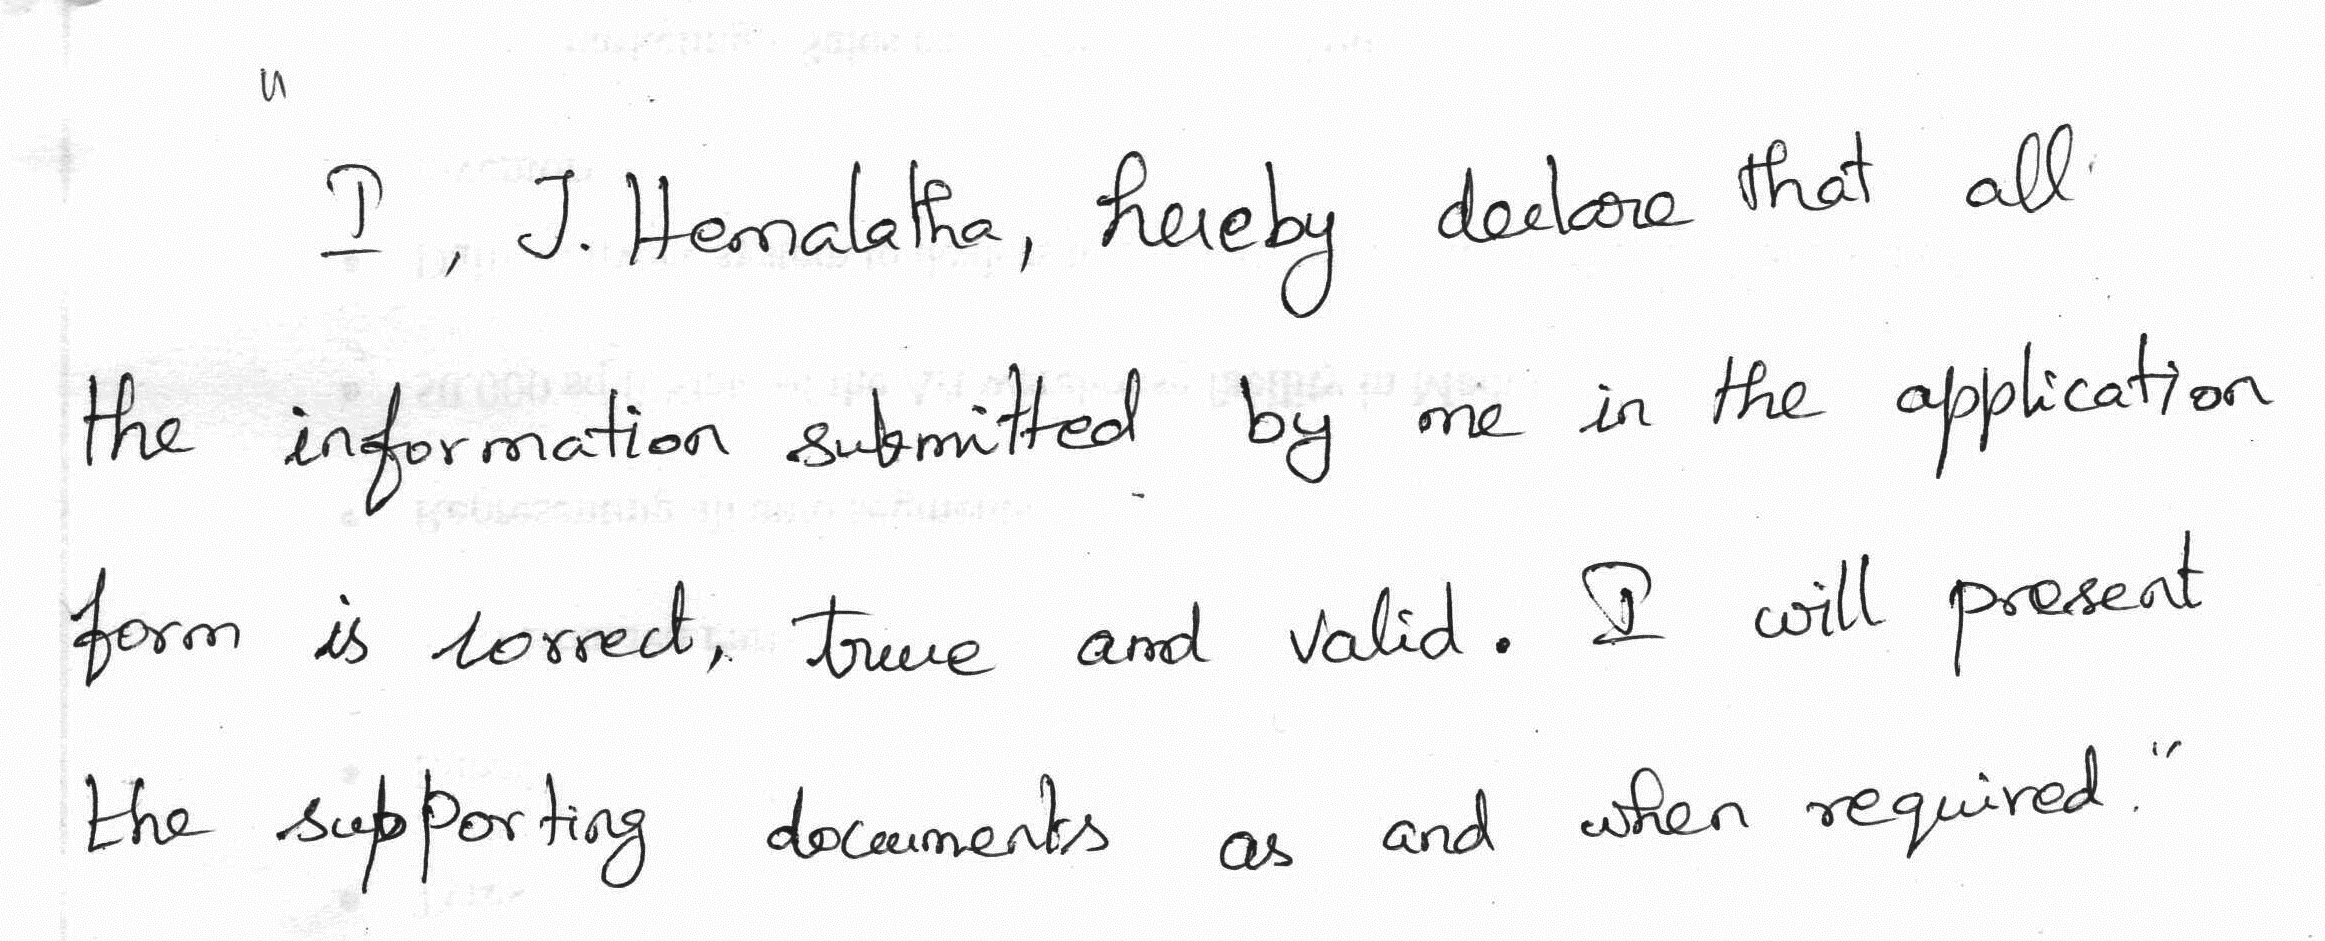 "
I, J. Hemalatha, hereby declare that all
the information submitted by me in the application
form is correct, true and valid. I will present
the supporting documents as and when required."